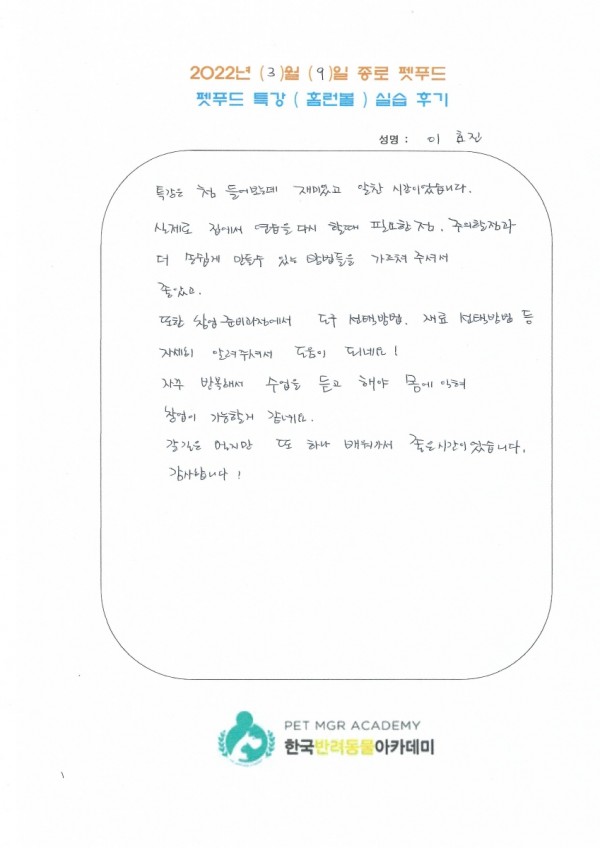 2022년 (3)월 (9)일 종로 펫푸드
펫푸드 특강 ( 홈런볼 ) 실습 후기
성명 : 이 효진
특강은 첨 들어보는데 재미있고 알찬 시간이었습니다.
실제로 집에서 연습을 다시 할때 필요한 점, 주의할점과
더 손쉽게 만들수 있는 방법들을 가르쳐 주셔서
좋았고.
또한 창업 준비과정에서 도구 선택방법, 재료 선택방법 등
자세히 알려주셔서 도움이 되네요!
자꾸 반복해서 수업을 듣고 해야 몸에 익혀
창업이 가능할거 같네요.
갈길은 멀지만 또 하나 배워가서 좋은시간이었습니다.
감사합니다!
PET MGR ACADEMY
한국반려동물아카데미